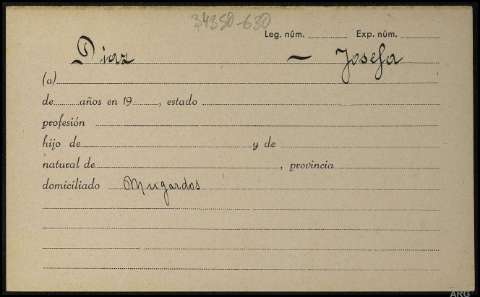 34350-630
Leg. núm. Exp. núm.
Diaz — Josefa
(a)
de años en 19 , estado
profesión
hijo de y de
natural de , provincia
domiciliado Mugardos
ARG